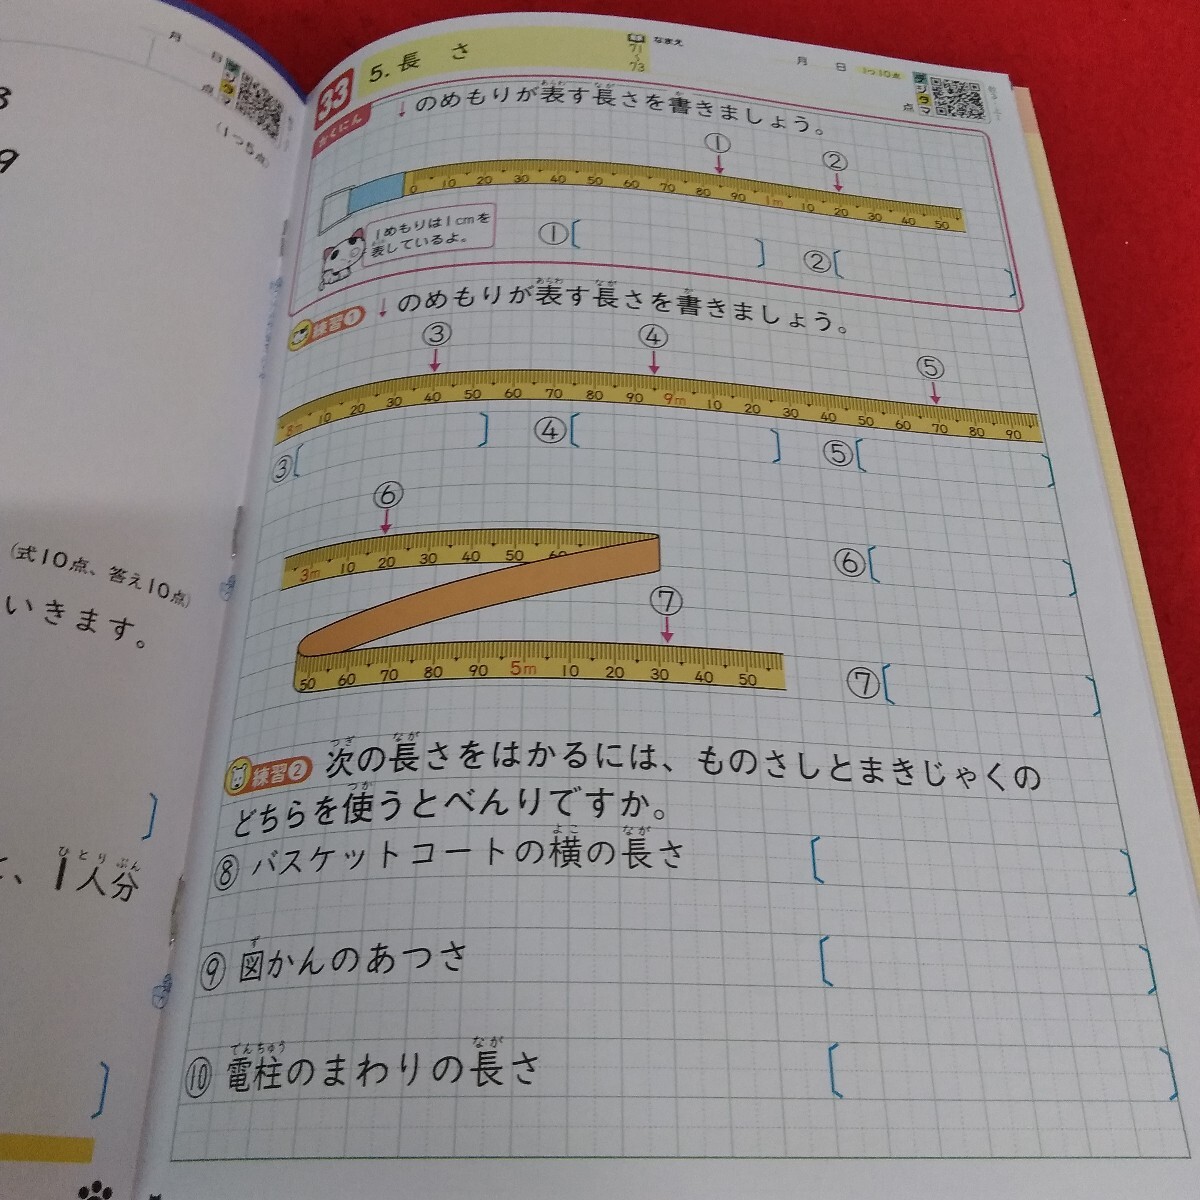 8
9
月 日
デジタマ
点
(1つ5点)
(式10点、答え10点)
いきます。
、1人分
ひとりぶん
33
5. 長さ
71
〜
73
なまえ
月 日
1つ10点
点
デジタマ
かくにん
↓のめもりが表す長さを書きましょう。
あらわ なが か
① ②
0 10 20 30 40 50 60 70 80 90 1m 10 20 30 40 50
1めもりは1cmを
表しているよ。
①[ ] ②[ ]
練習1
↓のめもりが表す長さを書きましょう。
あらわ なが か
③ ④ ⑤
8m 10 20 30 40 50 60 70 80 90 9m 10 20 30 40 50 60 70 80 90
③[ ] ④[ ] ⑤[ ]
⑥
3m 10 20 30 40 50 60
⑥[ ]
⑦
50 60 70 80 90 5m 10 20 30 40 50
⑦[ ]
練習2
次の長さをはかるには、ものさしとまきじゃくの
つぎ なが
どちらを使うとべんりですか。
つか
⑧ バスケットコートの横の長さ [ ]
よこ なが
⑨ 図かんのあつさ [ ]
ず
⑩ 電柱のまわりの長さ [ ]
でんちゅう なが